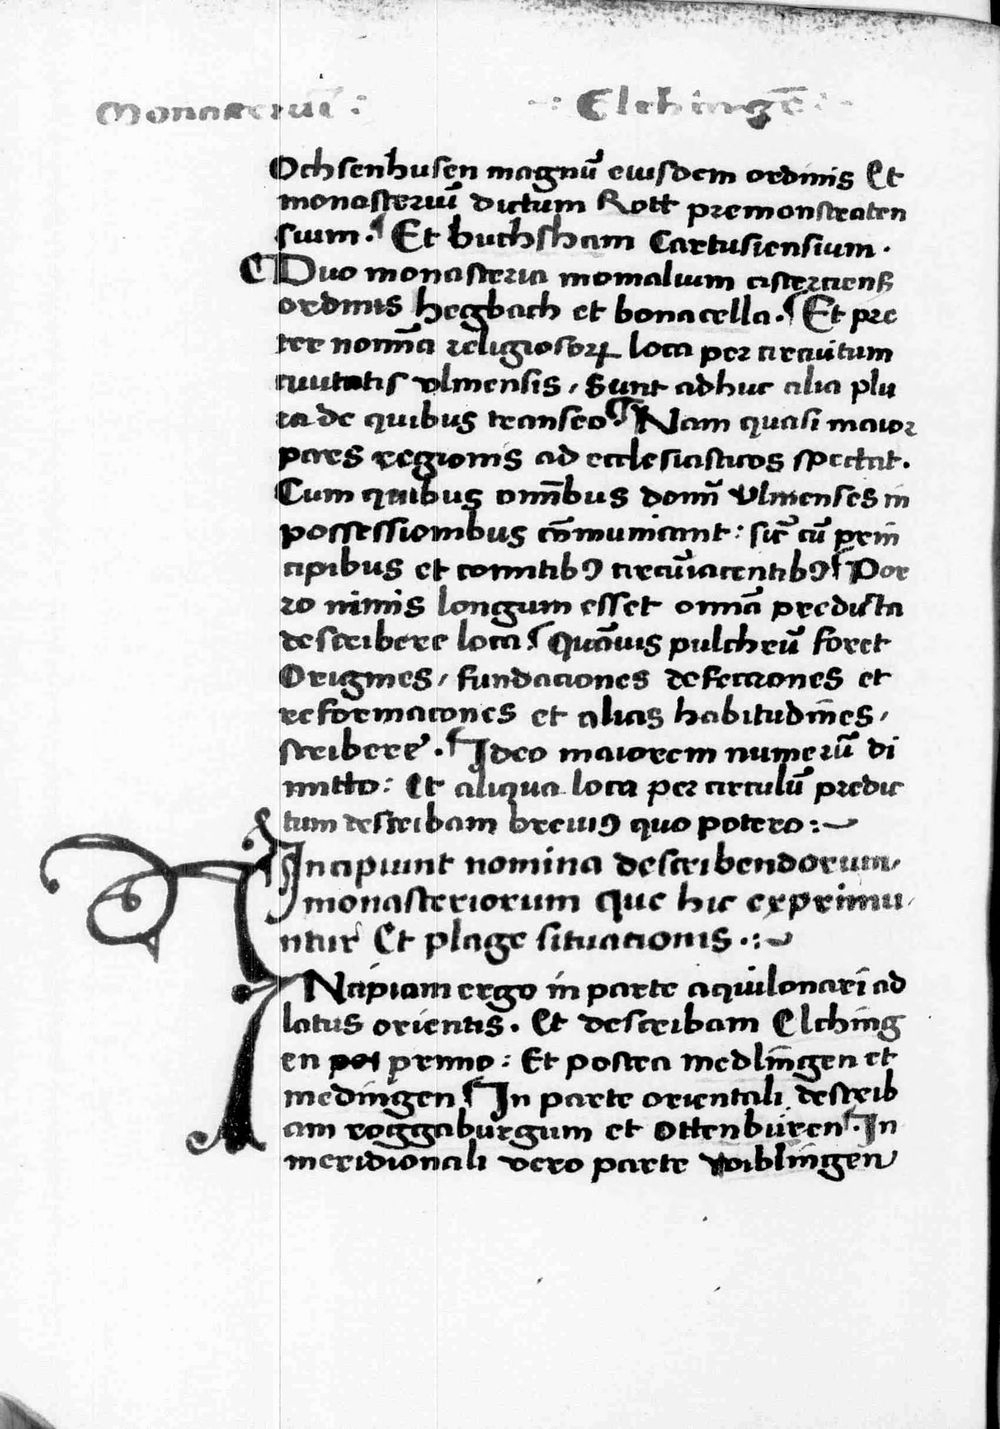 Monasteriū : ·: Elchingē :·
Ochsenhusen magnū eiusdem ordinis Et
monasteriū dictum Rott premonstraten
sium. Et buchsham Cartusiensium.
Duo monasteria monialium cisterciensß
ordinis hegbach et bonacella. Et pre
ter nomīa religiosorꝝ loca per circuitum
ciuitatis vlmensis, Sunt adhuc alia plu
ra de quibus transeo Nam quasi maior
pars regionis ad ecclesiasticos spectat.
Cum quibus omībus domī Vlmenses in
possessionibus cōmunicant: sic̄ cū prin
cipibus et comitibꝰ circūiacentibꝰ Por
ro nimis longum esset omīa predicta
describere loca Quāuis pulchrū foret
Origines, fundaciones defectiones et
reformacones et alias habitudīes,
scribere. Ideo maiorem numerū di
mitto: Et aliqua loca per circulū predic
tum describam breuiꝰ quo potero:~
Incipiunt nomina describendorum,
monasteriorum que hic exprimu,
ntur Et plage situationis.:~
INcipiam ergo in parte aquilonari ad
latus orientis. Et describam Elching
en primo: Et postea medlingen et
medingen In parte orientali describ
am roggaburgum et Ottenburen. In
meridionali vero parte wiblingen